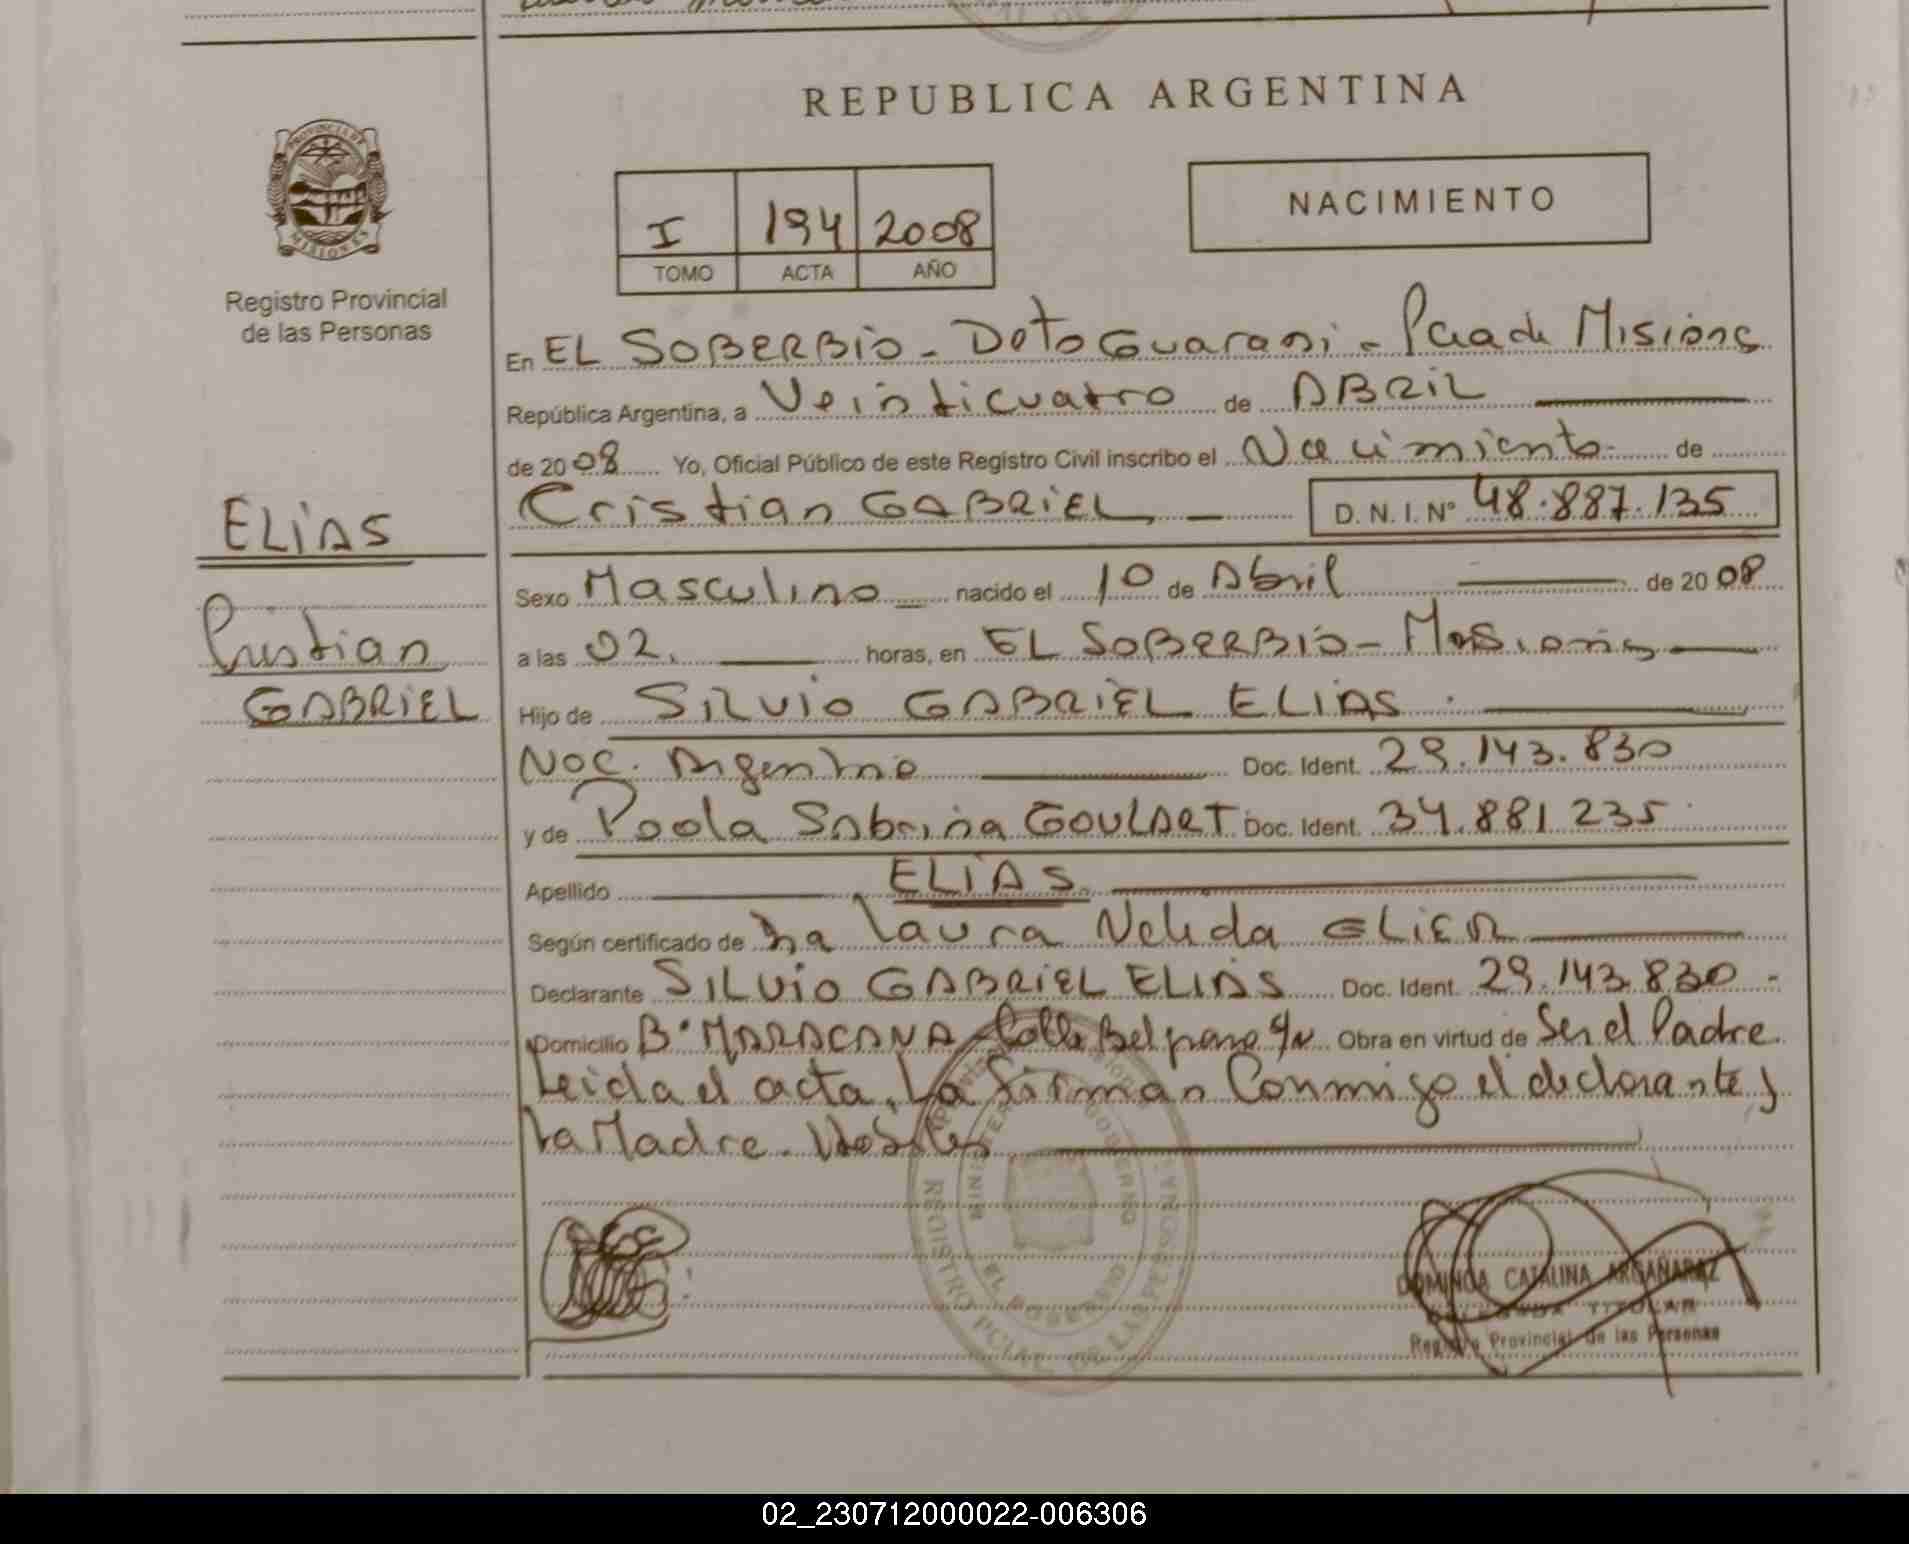 REPUBLICA ARGENTINA
PROVINCIA DE
MISIONES
Registro Provincial
de las Personas
I 194 2008
TOMO ACTA AÑO
NACIMIENTO
En EL SOBERBIO - Dpto Guarani - Pcia de Misiones
República Argentina, a Veinticuatro de ABRIL
de 2008 Yo, Oficial Público de este Registro Civil inscribo el Nacimiento de
Cristian GABRIEL D.N.I. Nº 48.887.135
ELIAS
Cristian
GABRIEL
Sexo Masculino nacido el 10 de Abril de 2008
a las 02. horas, en EL SOBERBIO - Misiones
Hijo de SILVIO GABRIEL ELIAS
Nac. Argentino Doc. Ident. 29.143.830
y de Paola Sabrina GOULART Doc. Ident. 34.881 235
Apellido ELIAS
Según certificado de Laura Nelida
Declarante SILVIO GABRIEL ELIAS Doc. Ident. 29.143.830 -
Domicilio Bº MARACANA Calle Belgrano S/N Obra en virtud de Ser el Padre
Leida el acta, La firman Conmigo el declarante y
La Madre.
MINISTERIO GOBIERNO
EL SOBERBIO
REGISTRO PCIAL. DE LAS PERSONAS
DOMINGA CATALINA ARGAÑARAZ
DELEGADA TITULAR
Registro Provincial de las Personas
02_230712000022-006306